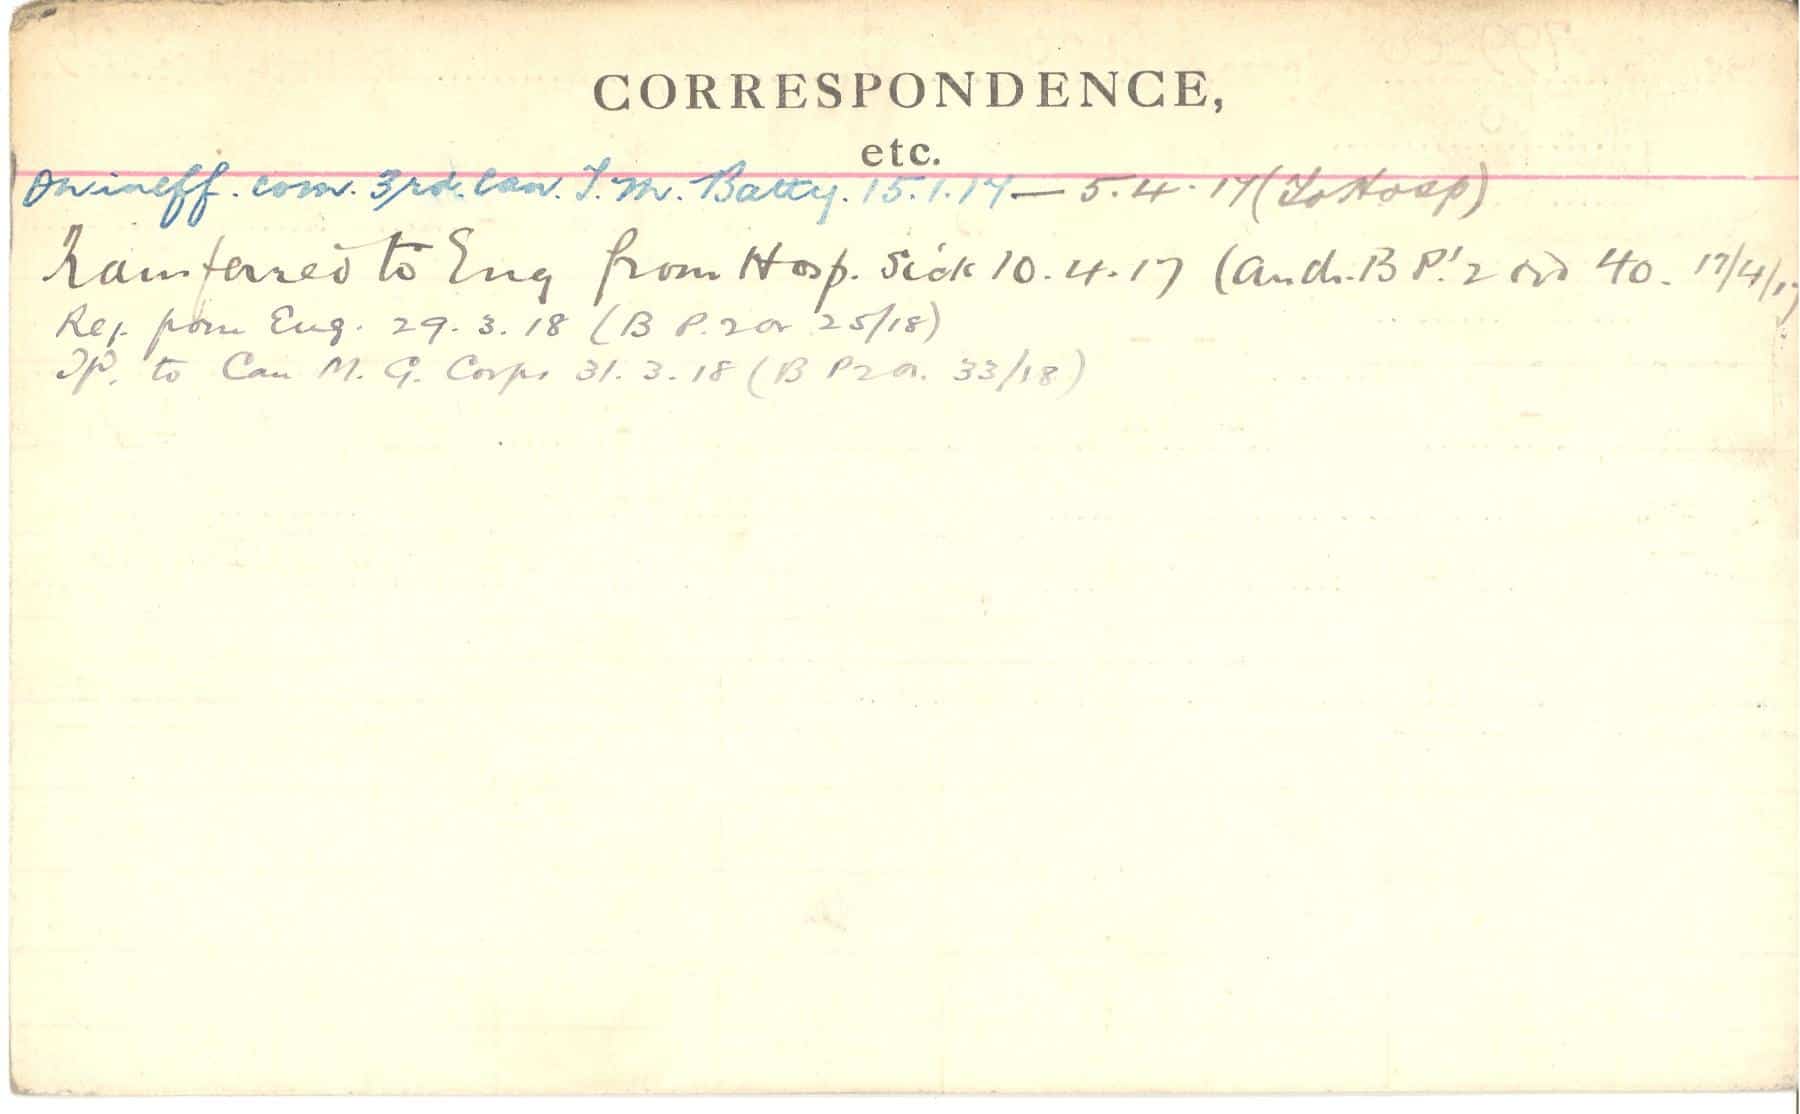 CORRESPONDENCE,
etc.
On ineff. com. 3rd. Can. T. M. Batty. 15.1.17 — 5.4.17 (To Hosp)
Transferred to Eng from Hosp. Sick 10.4.17 (Auth. B P.' 2 ord 40. 17/4/17
Rej. from Eng. 29.3.18 (B P. 2 or 25/18)
Tp. to Can M. G. Corps 31.3.18 (B P 2 or. 33/18)